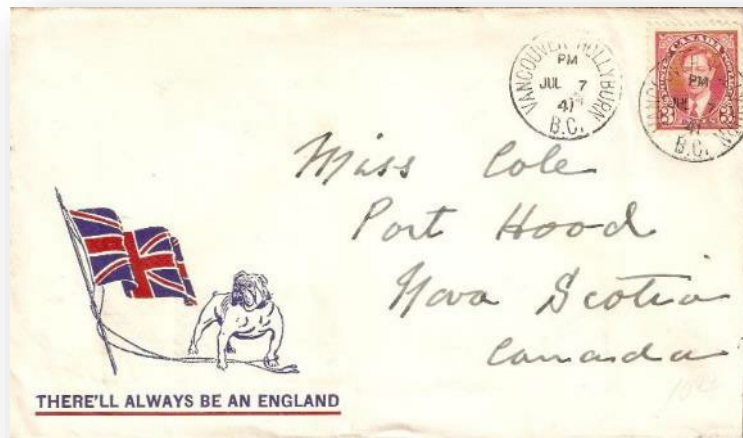 VANCOUVER-HOLLYBURN
PM
JUL 7
41
B.C.
CANADA
3 3
PM
JUL 7
41
B.C.
Miss Cole
Port Hood
Nova Scotia
Canada
THERE'LL ALWAYS BE AN ENGLAND